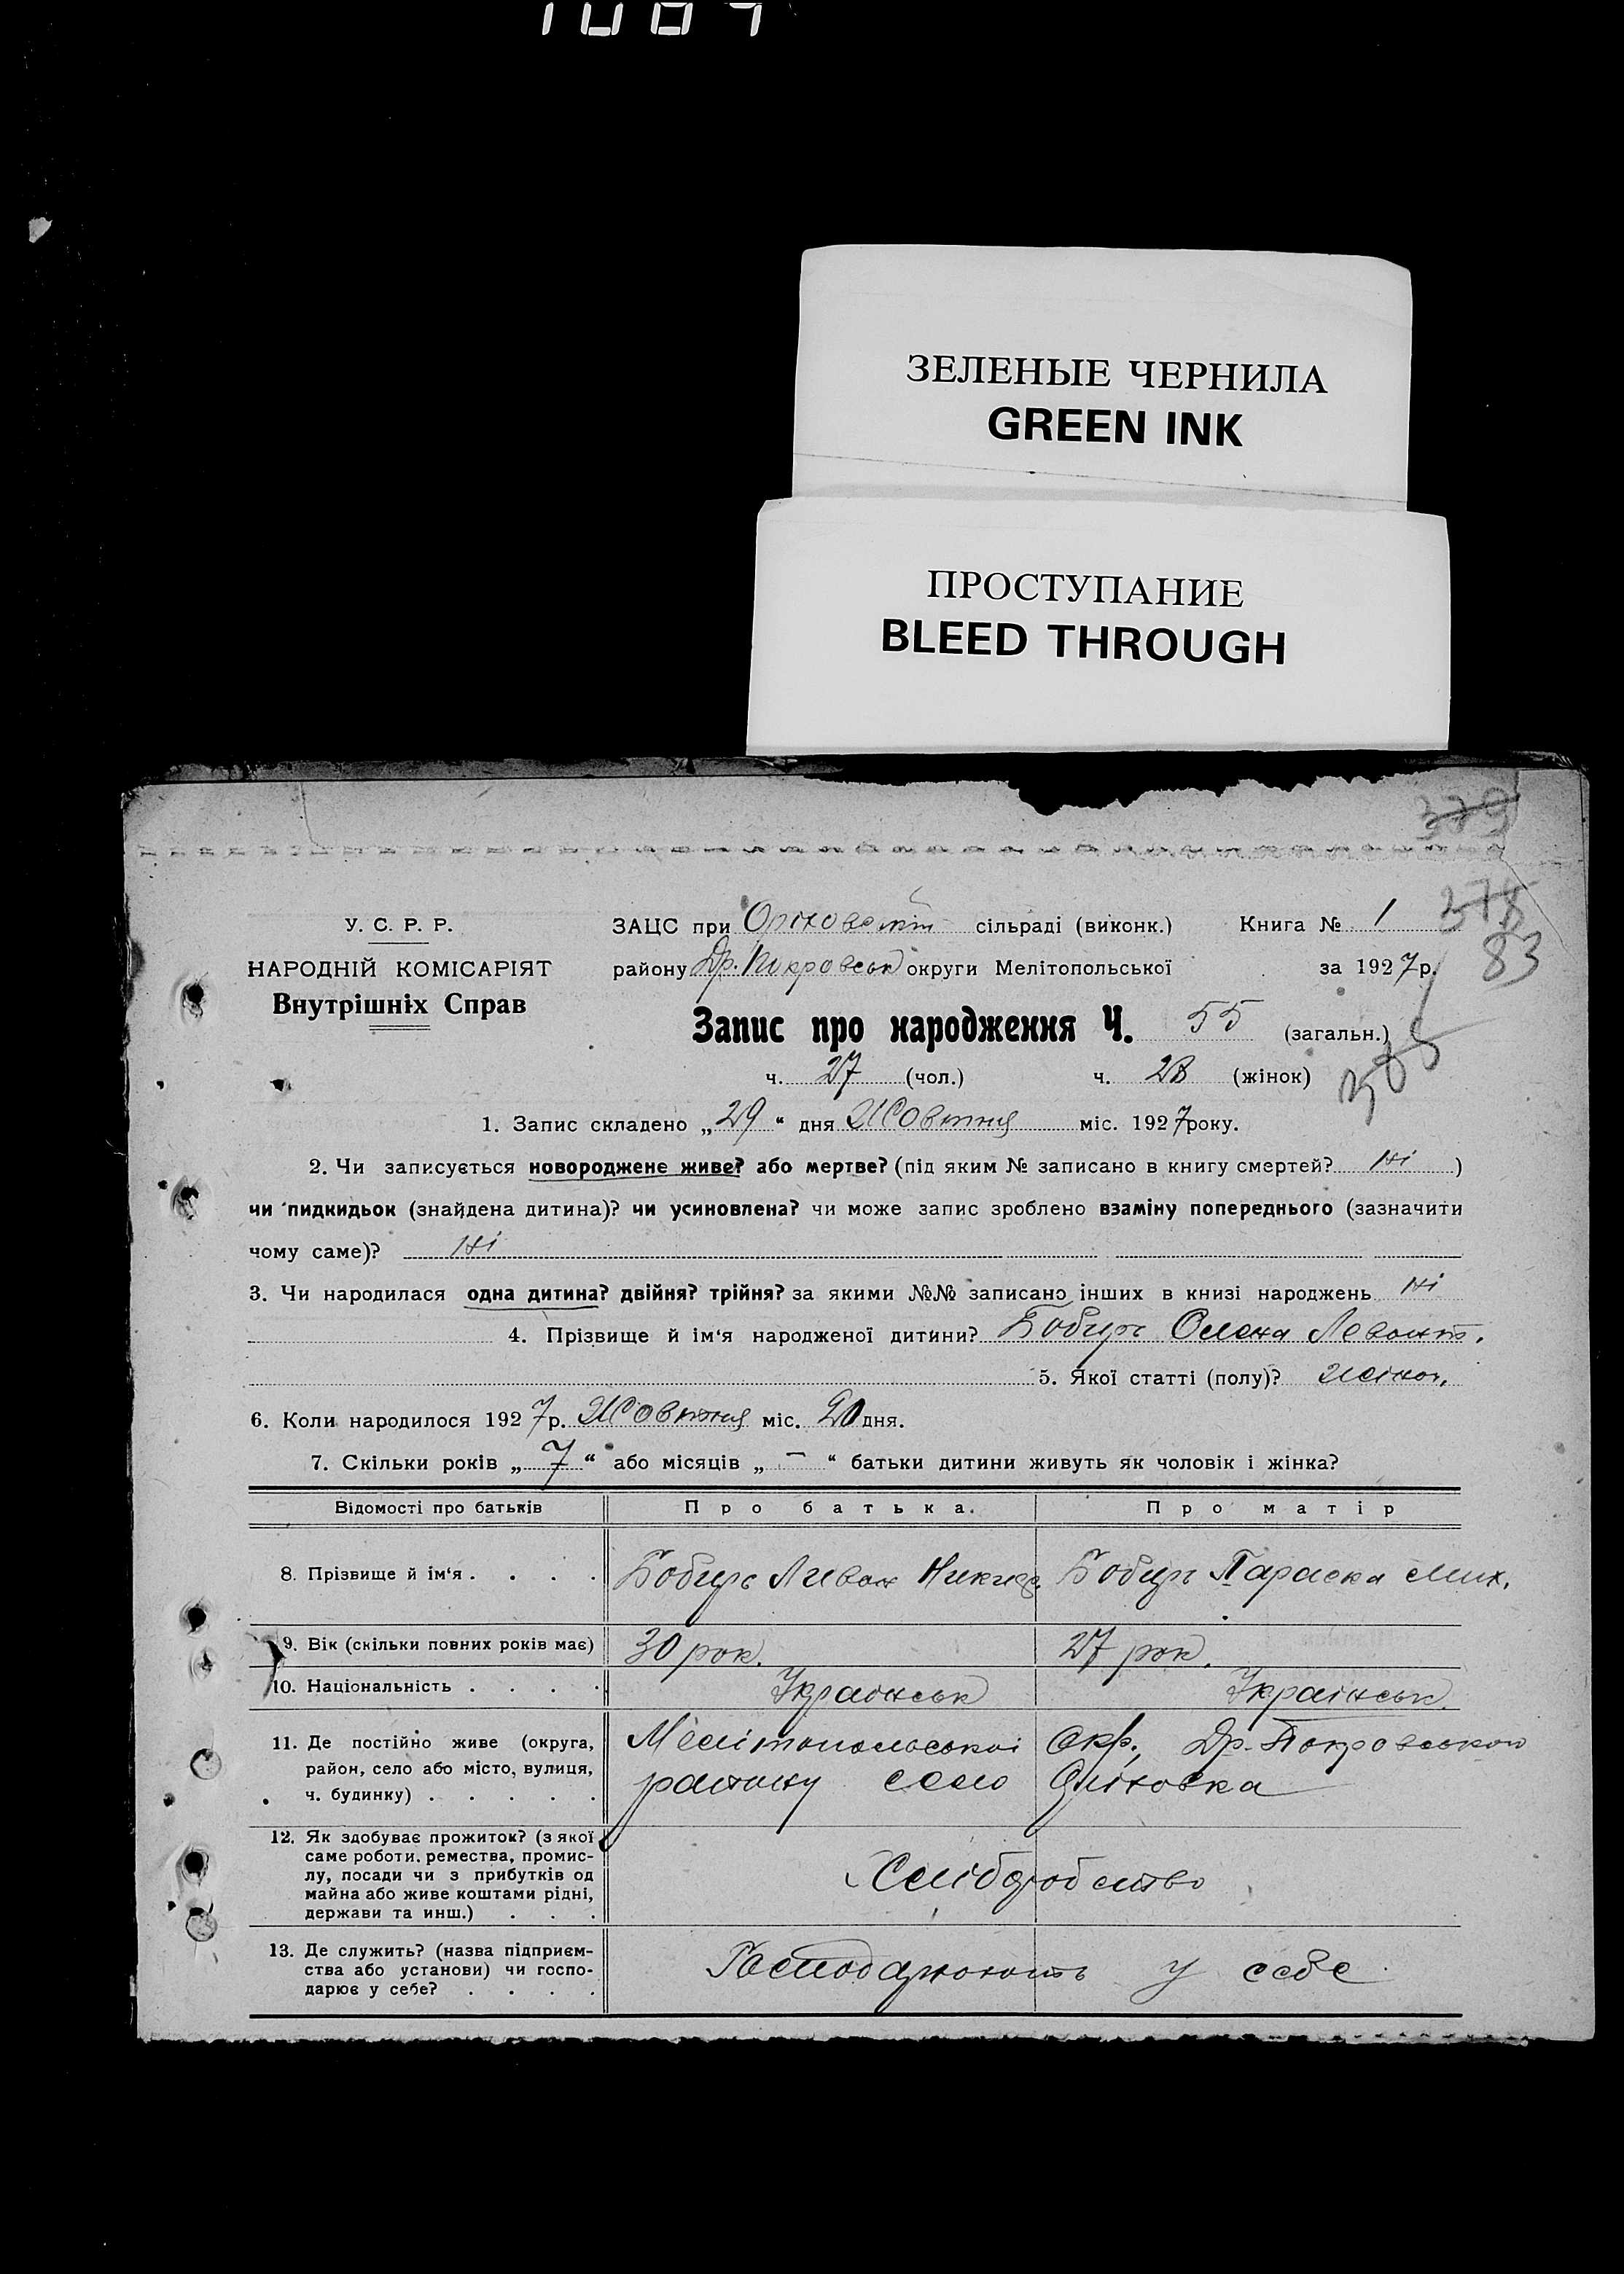 ЗЕЛЕНЫЕ ЧЕРНИЛА
GREEN INK
ПРОСТУПАНИЕ
BLEED THROUGH
379
378
83
У. С. Р. Р.
НАРОДНІЙ КОМІСАРІЯТ
Внутрішніх Справ
ЗАЦС при сільраді (виконк.) Книга № 1
району Др. Покровськ округи Мелітопольської за 1927 р.
Запис про народження Ч. 55 (загальн.)
ч. 27 (чол.) ч. 28 (жінок)
1. Запис складено „29“ дня Жовтня міс. 1927 року.
2. Чи записується новороджене живе? або мертве? (під яким № записано в книгу смертей? Ні )
чи пидкидьок (знайдена дитина)? чи усиновлена? чи може запис зроблено взаміну попереднього (зазначити
чому саме)? Ні
3. Чи народилася одна дитина? двійня? трійня? за якими №№ записано інших в книзі народжень Ні
4. Прізвище й ім‘я народженої дитини? Бобирь Олена Левонт.
5. Якої статті (полу)? жіноч.
6. Коли народилося 1927 р. Жовтня міс. 20 дня.
7. Скільки років „ 7 “ або місяців „ — “ батьки дитини живуть як чоловік і жінка?
Відомості про батьків Про батька. Про матір
8. Прізвище й ім‘я . . . . Бобирь Ливон Бобирь Параска Мих.
9. Вік (скільки повних років має) 30 рок. 27 рок.
10. Національність . . . . Українськ Українськ.
11. Де постійно живе (округа, Мелітопольської Окр. Др-Покровського
район, село або місто, вулиця, району село
ч. будинку) . . . . .
12. Як здобуває прожиток? (з якої
саме роботи, ремества, промис-
лу, посади чи з прибутків од Хліборобство
майна або живе коштами рідні,
держави та инш.) . . .
13. Де служить? (назва підприєм-
ства або установи) чи госпо- Господарюють у себе
дарює у себе? . . . .